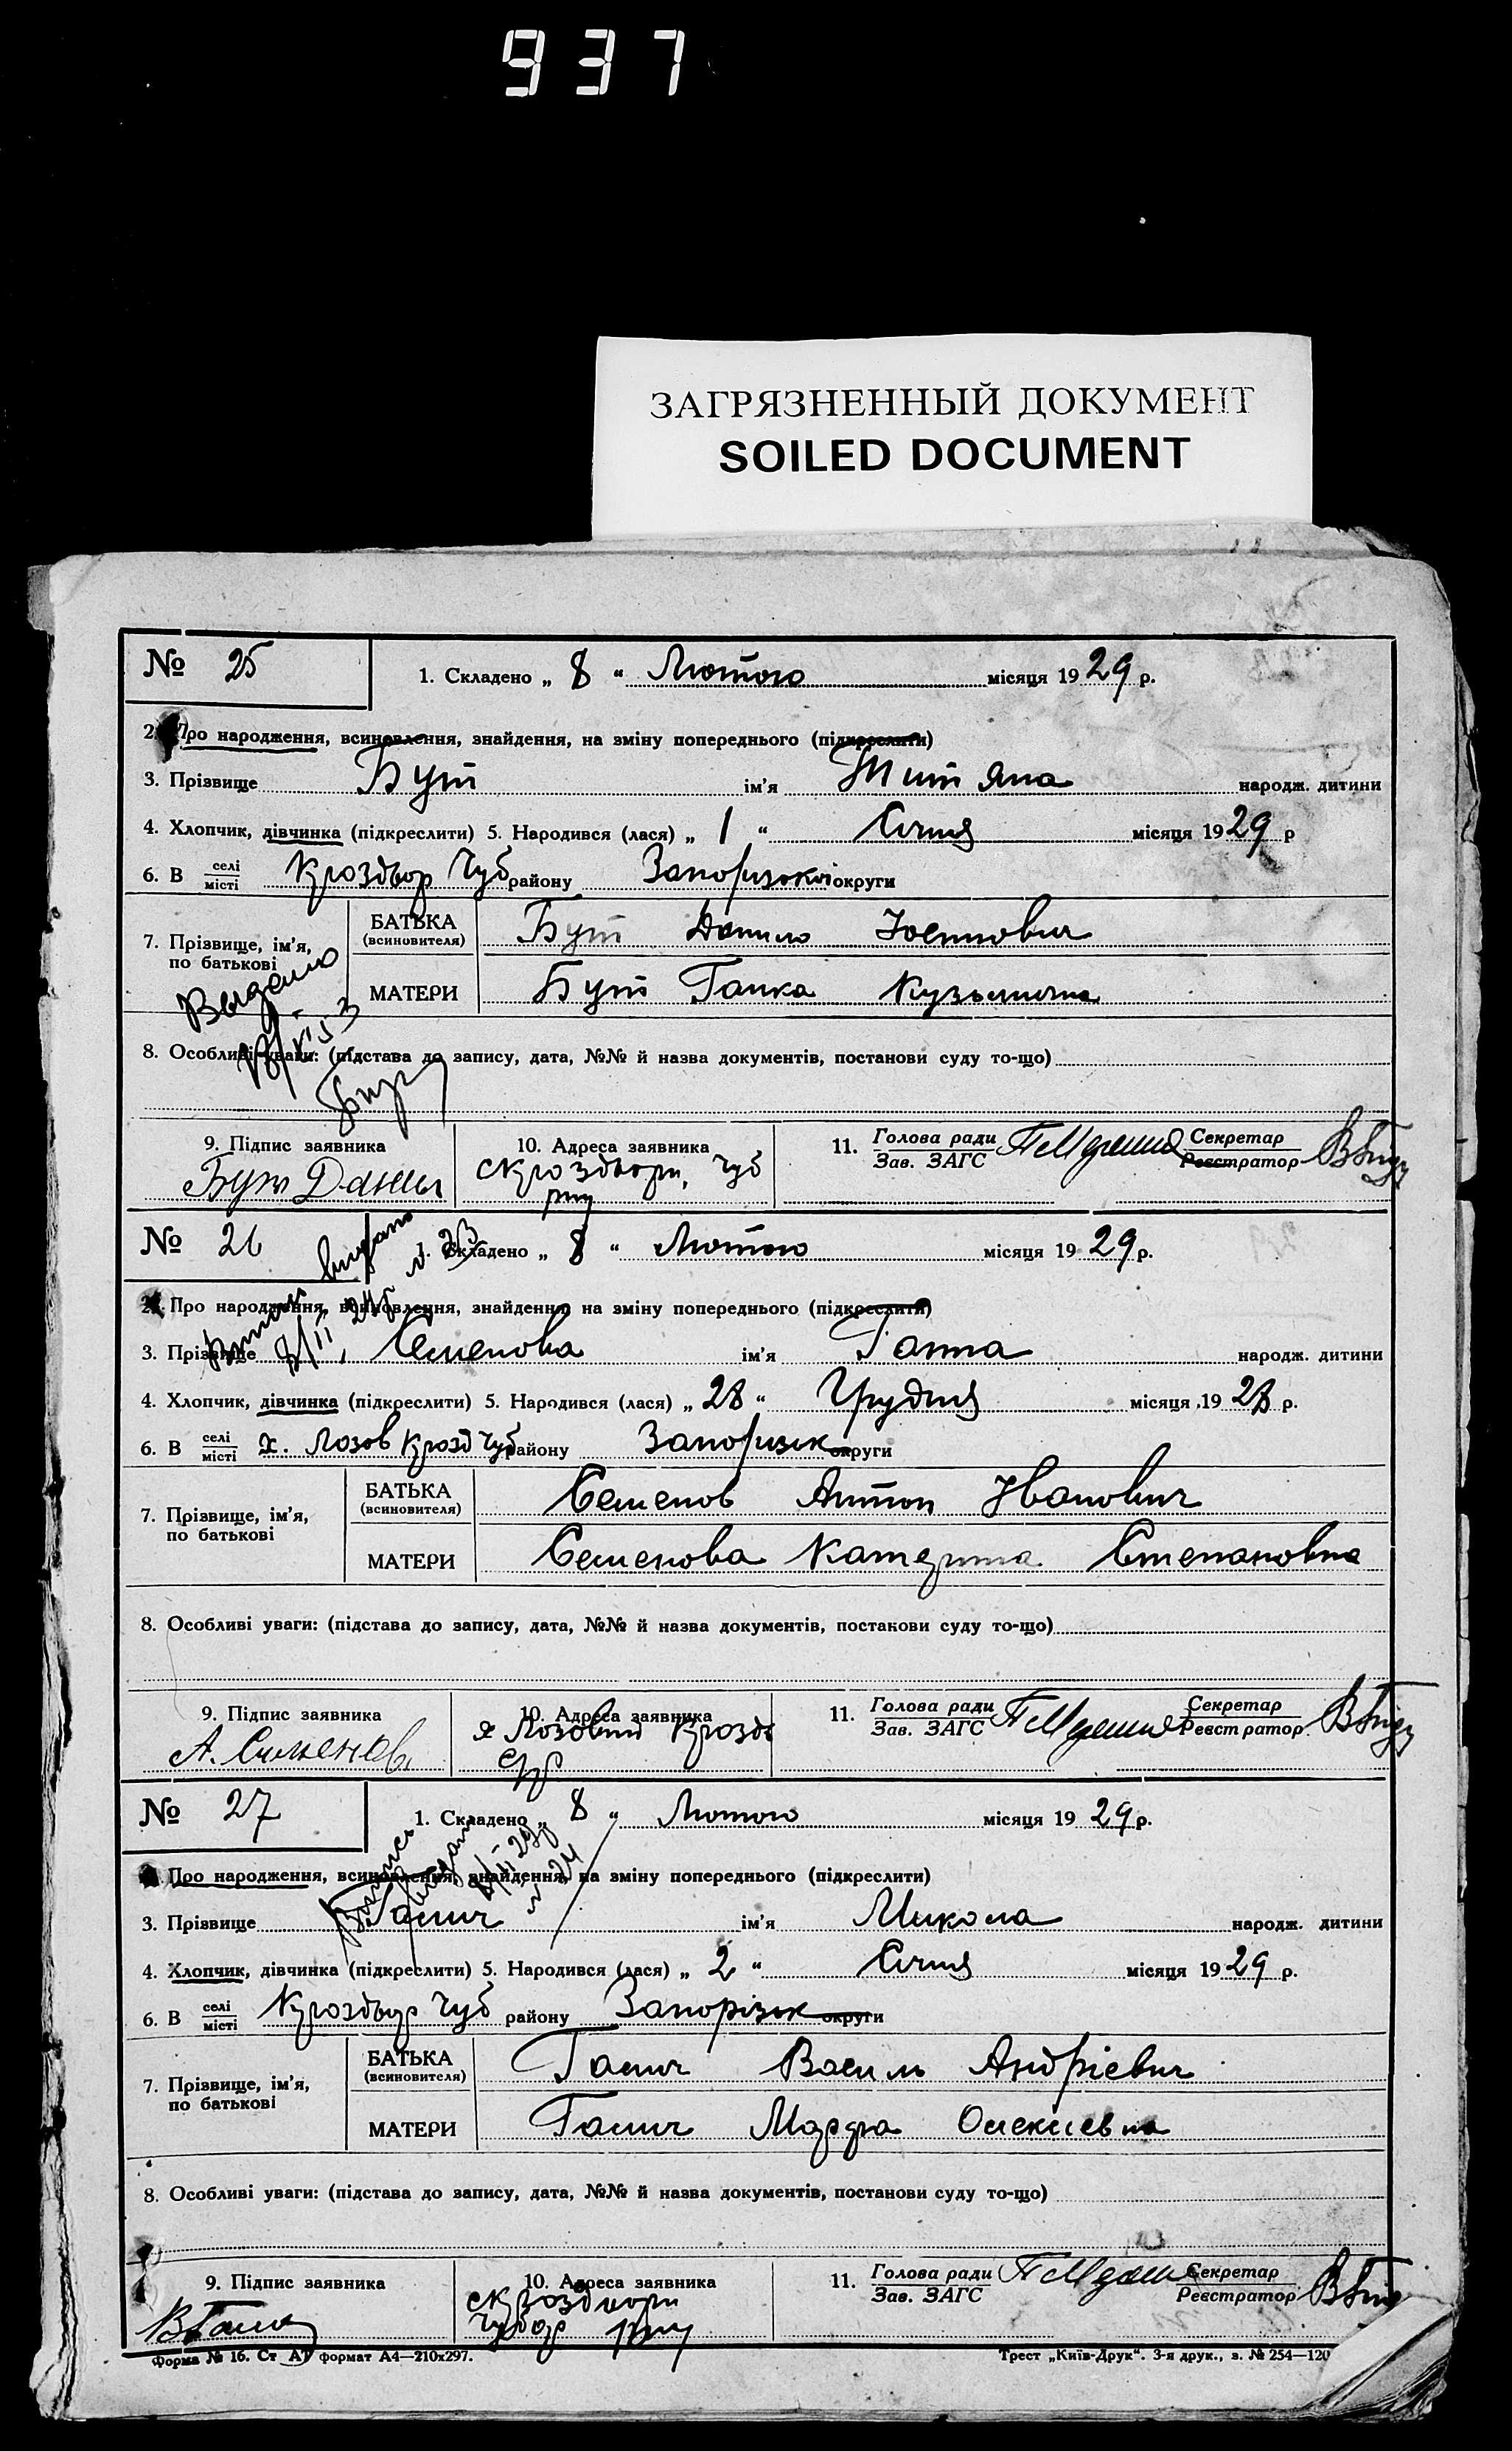 937
ЗАГРЯЗНЕННЫЙ ДОКУМЕНТ
SOILED DOCUMENT
№ 25
1. Складено „ 8 “ Лютого місяця 1929 р.
2. Про народження, всиновлення, знайдення, на зміну попереднього (підкреслити)
3. Прізвище Бут ім'я Титяна народж. дитини
4. Хлопчик, дівчинка (підкреслити) 5. Народився (лася) „ 1 “ Січня місяця 1929 р
6. В селі/місті Кроздвор Чуб району Запорізької округи
7. Прізвище, ім'я, по батькові
БАТЬКА (всиновителя) Бут Данило
МАТЕРИ Бут Ганка Кузьминична
Выдано
8. Особливі уваги: (підстава до запису, дата, №№ й назва документів, постанови суду то-що)
9. Підпис заявника
Бут Данил
10. Адреса заявника
11. Голова ради
Зав. ЗАГС
Секретар
Реєстратор
№ 26
1. Складено „ 8 “ Лютого місяця 1929 р.
2. Про народження, всиновлення, знайдення, на зміну попереднього (підкреслити)
3. Прізвище Семенова ім'я Ганна народж. дитини
4. Хлопчик, дівчинка (підкреслити) 5. Народився (лася) „ 28 “ Грудня місяця 1928 р.
6. В селі/місті х. Лозов Крозд Чуб району Запорізьк округи
7. Прізвище, ім'я, по батькові
БАТЬКА (всиновителя) Семенов Антон Іванович
МАТЕРИ Семенова Катерина Степановна
8. Особливі уваги: (підстава до запису, дата, №№ й назва документів, постанови суду то-що)
9. Підпис заявника
А. Сименов
10. Адреса заявника
х Лозовий Крозд
11. Голова ради
Зав. ЗАГС
Секретар
Реєстратор
№ 27
1. Складено „ 8 “ Лютого місяця 1929 р.
2. Про народження, всиновлення, знайдення, на зміну попереднього (підкреслити)
3. Прізвище Галич ім'я Микола народж. дитини
4. Хлопчик, дівчинка (підкреслити) 5. Народився (лася) „ 2 “ Січня місяця 1929 р.
6. В селі/місті Кроздвор Чуб району Запорізьк округи
7. Прізвище, ім'я, по батькові
БАТЬКА (всиновителя) Галич Василь Андрієвич
МАТЕРИ Галич Марфа Олексієвна
8. Особливі уваги: (підстава до запису, дата, №№ й назва документів, постанови суду то-що)
9. Підпис заявника
10. Адреса заявника
11. Голова ради
Зав. ЗАГС
Секретар
Реєстратор
Форма № 16. Ст АТ формат А4—210х297.
Трест „Київ-Друк“. 3-я друк., з. № 254—120